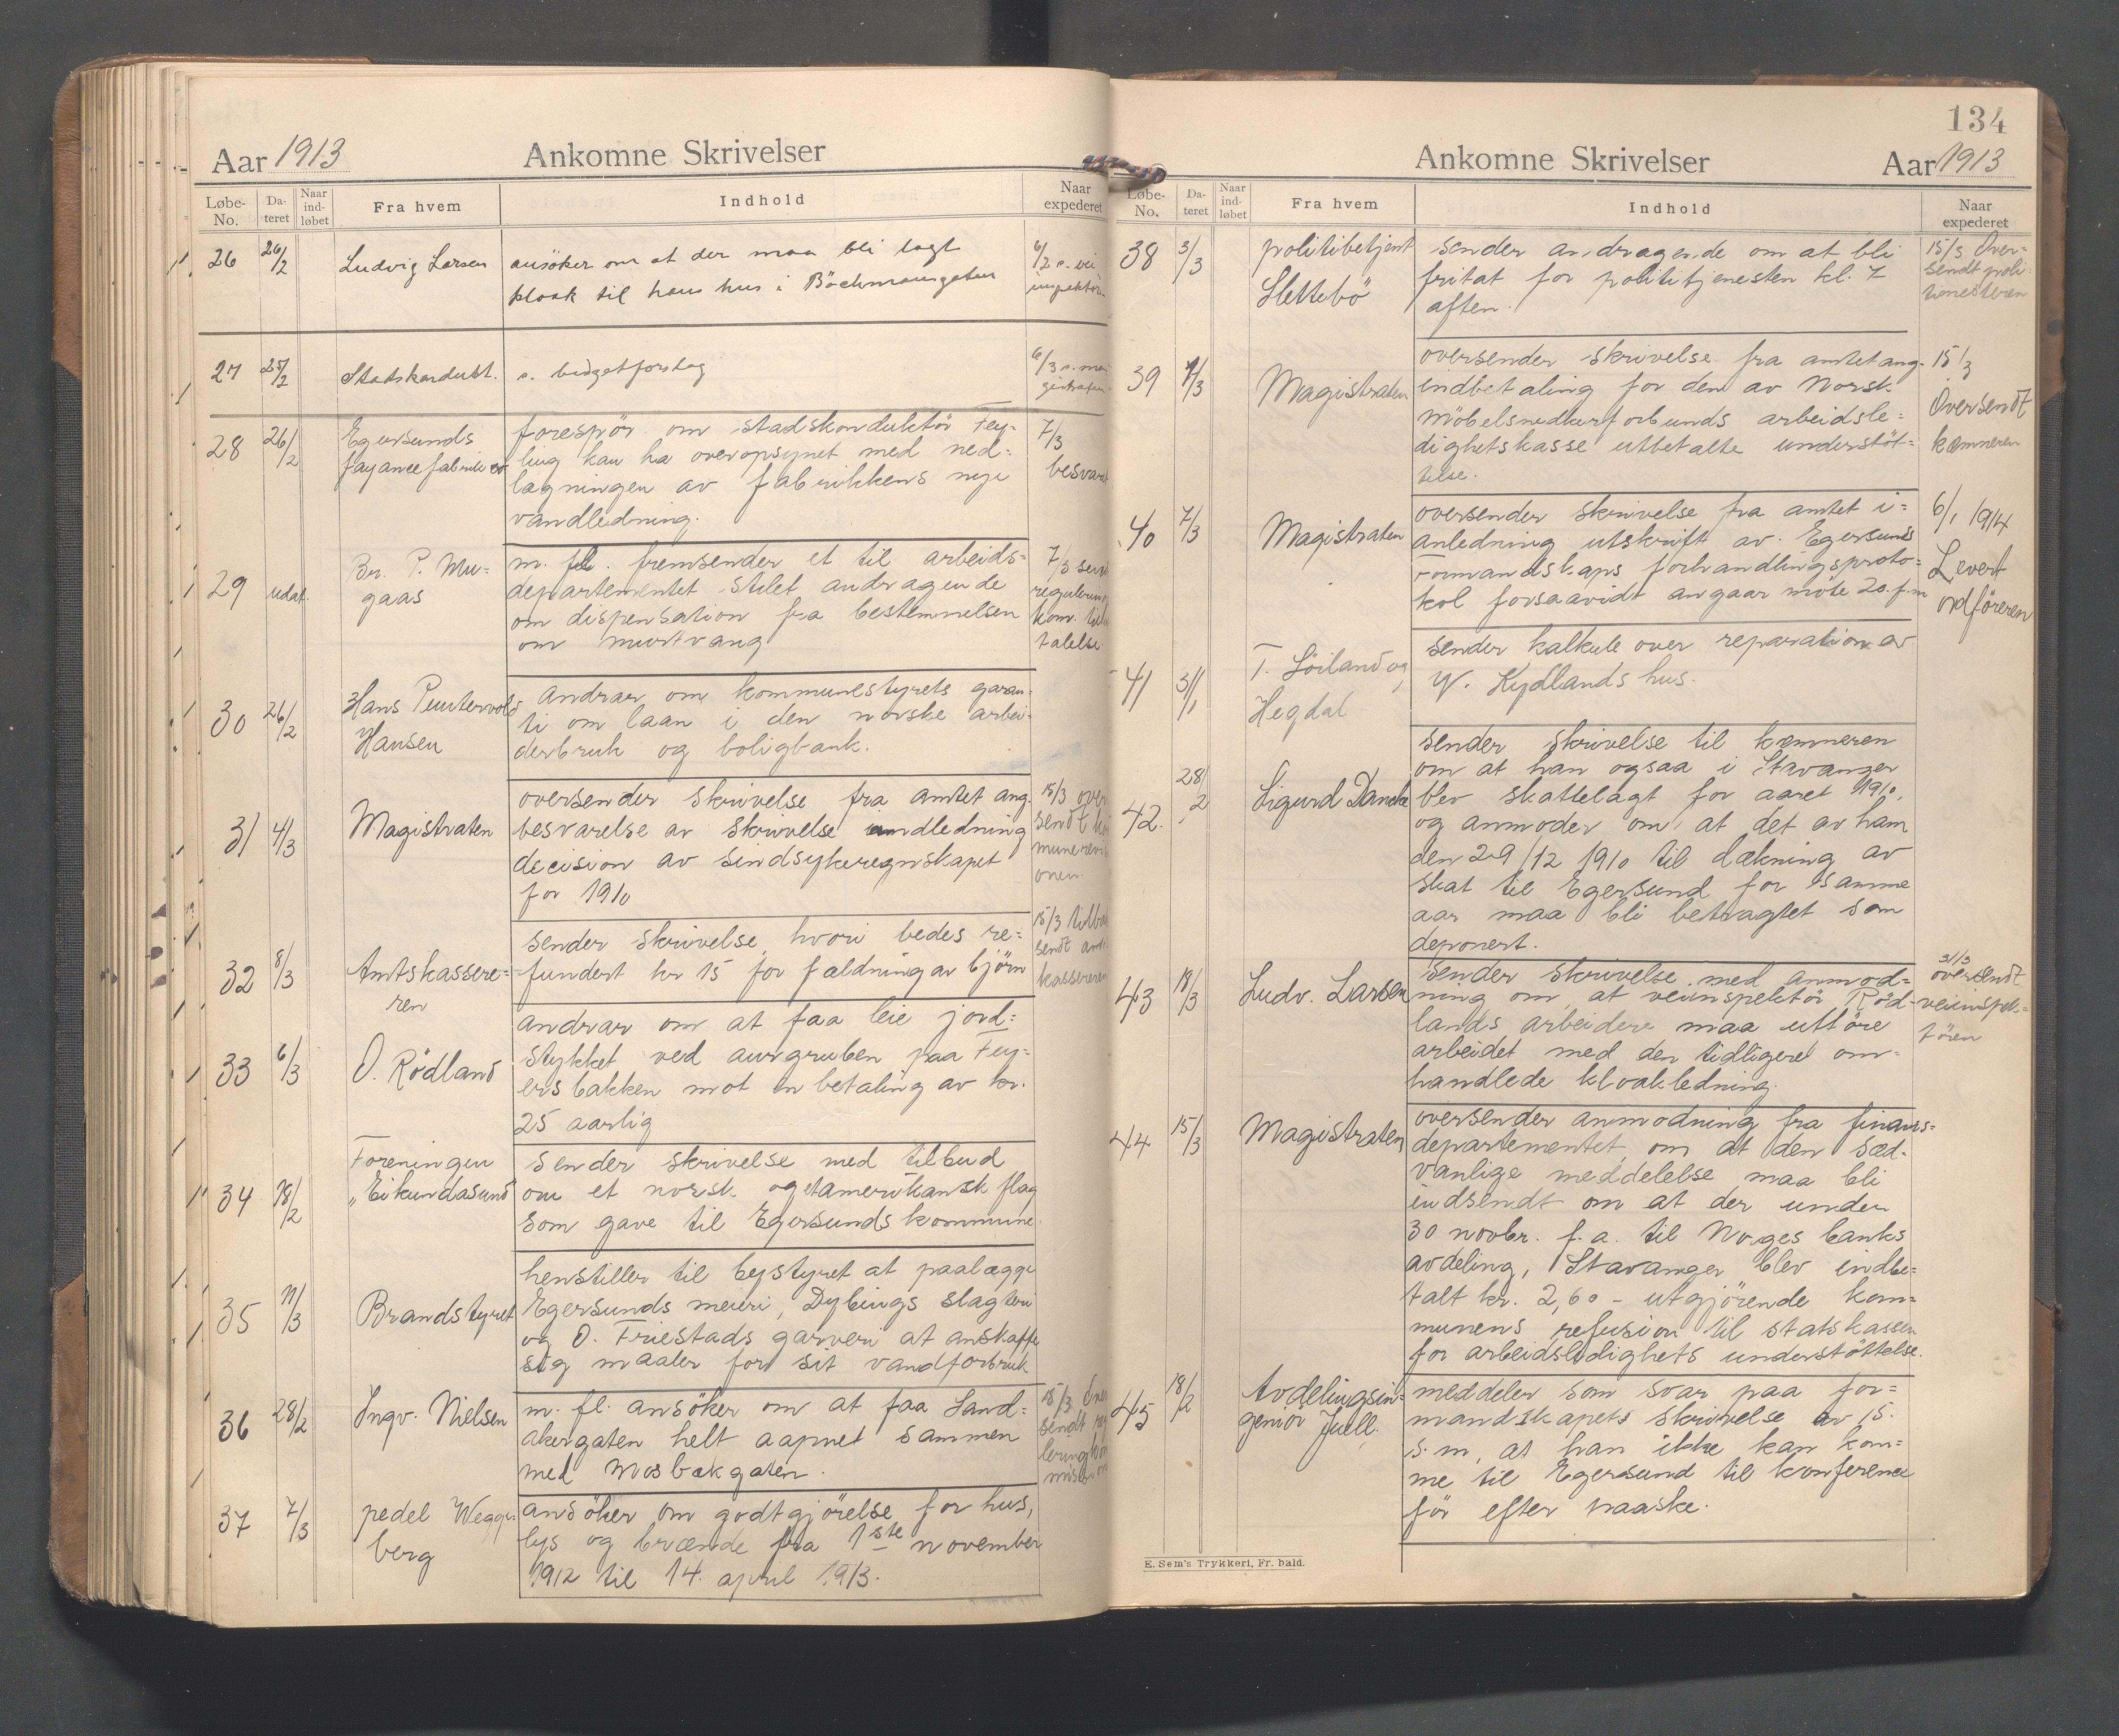 Aar 1913 Ankomne Skrivelser
Løbe-No. Da-teret Naar ind-løbet Fra hvem Indhold Naar expederet
26 26/2 Ludvig Larsen ansöker om at der maa bli lagt 6/3 s. vei
kloak til hans hus i Böckmansgaten inspektören
27 25/2 Stadskondukt. s. budgetforslag 6/3 s. ma
gistraten
28 26/2 Egersunds forespör om stadskonduktör Fey= 7/3
fayancefabrik er ling kan ha overopsynet med ned= besvaret
lægningen av fabrikkens nye
vandledning.
29 udat. Br. P. Mu= m. fl. fremsender et til arbeids= 7/3 sendt
gaas departementet stilet andragende regulerings
om dispensation fra bestemmelsen kom. til u
om murtvang talelse.
30 26/2 Hans Puntervold andrar om kommunestyrets garan=
Hansen ti om laan i den norske arbei=
derbruk og boligbank.
31 4/3 Magistraten oversender skrivelse fra amtet ang. 15/3 over
besvarelse av skrivelse andledning sendt kom
decision av sindsykeregnskapet munerevisi
for 1910 onen.
32 8/3 Amtskassere= sender skrivelse, hvori bedes re= 15/3 tilba
ren fundert kr 15 for fældning av björn sendt amts
kassereren
33 6/3 O. Rödland andrar om at faa leie jord=
stykket ved aurgruben paa Fey=
ersbakken mot en betaling av kr.
25 aarlig
34 18/2 Foreningen sender skrivelse med tilbud
"Eikundasund" om et norsk og et amerikansk flag
som gave til Egersunds kommune.
35 11/3 Brandstyret henstiller til bystyret at paalægge
Egersunds meieri, Dybings slagteri
og O. Friestads garveri at anskaffe
sig maaler for sit vandforbruk
36 28/2 Ingv. Nielsen m. fl. ansöker om at faa Sand= 15/3 Over
akergaten helt aapnet sammen sendt regu
med Mosbækgaten. leringskom
mission
37 7/3 pedel Wegge= ansöker om godtgjörelse for hus,
berg lys og brænde fra 1ste november
1912 til 14. april 1913.
134
Ankomne Skrivelser Aar 1913
Løbe-No. Da-teret Naar ind-løbet Fra hvem Indhold Naar expederet
38 3/3 politibetjent sender andragende om at bli 15/3 Over=
Slettebö fritat for polititjenesten kl. 7 sendt poli=
aften. timesteren
39 7/3 Magistraten oversender skrivelse fra amtet ang. 15/3
indbetaling for den av Norsk Oversendt
möbelsnedkerforbunds arbeidsle= kæmneren
dighetskasse utbetalte understöt=
telse.
40 7/3 Magistraten oversender skrivelse fra amtet i= 6/1 1914
anledning utskrift av Egersunds Levert
formandskaps forhandlingsproto= ordföreren
kol forsaavidt angaar möte 20. f. m
41 31/1 T. Söiland og sender kalkule over reparation av
Hegdal W. Kydlands hus.
42. 28/2 Sigurd Dancke sender skrivelse til kæmneren
om at han ogsaa i Stavanger
blev skattelagt for aaret 1910,
og anmoder om, at det av ham
den 29/12 1910 til dækning av
skat til Egersund for samme
aar maa bli betragtet som
deponert.
43 18/3 Ludv. Larsen sender skrivelse med anmod= 31/3 oversendt
ning om at veiinspektör Röd= veiinspek=
lands arbeidere maa utföre tören
arbeidet med den tidligere om=
handlede kloakledning.
44 15/3 Magistraten oversender anmodning fra finans=
departementet om at den sæd=
vanlige meddelelse maa bli
indsendt om at der under
30 novbr. f. a. til Norges banks
avdeling, Stavanger blev indbe=
talt kr. 2,60 - utgjörende kom=
munens refusion til statskassen
for arbeidsledighets understöttelse.
45 18/2 Avdelingsin= meddeler som svar paa for=
geniör Juell. mandskapets skrivelse av 15.
s. m, at han ikke kan kom=
me til Egersund til konference
för efter paaske.
E. Sem's Trykkeri, Fr. hald.